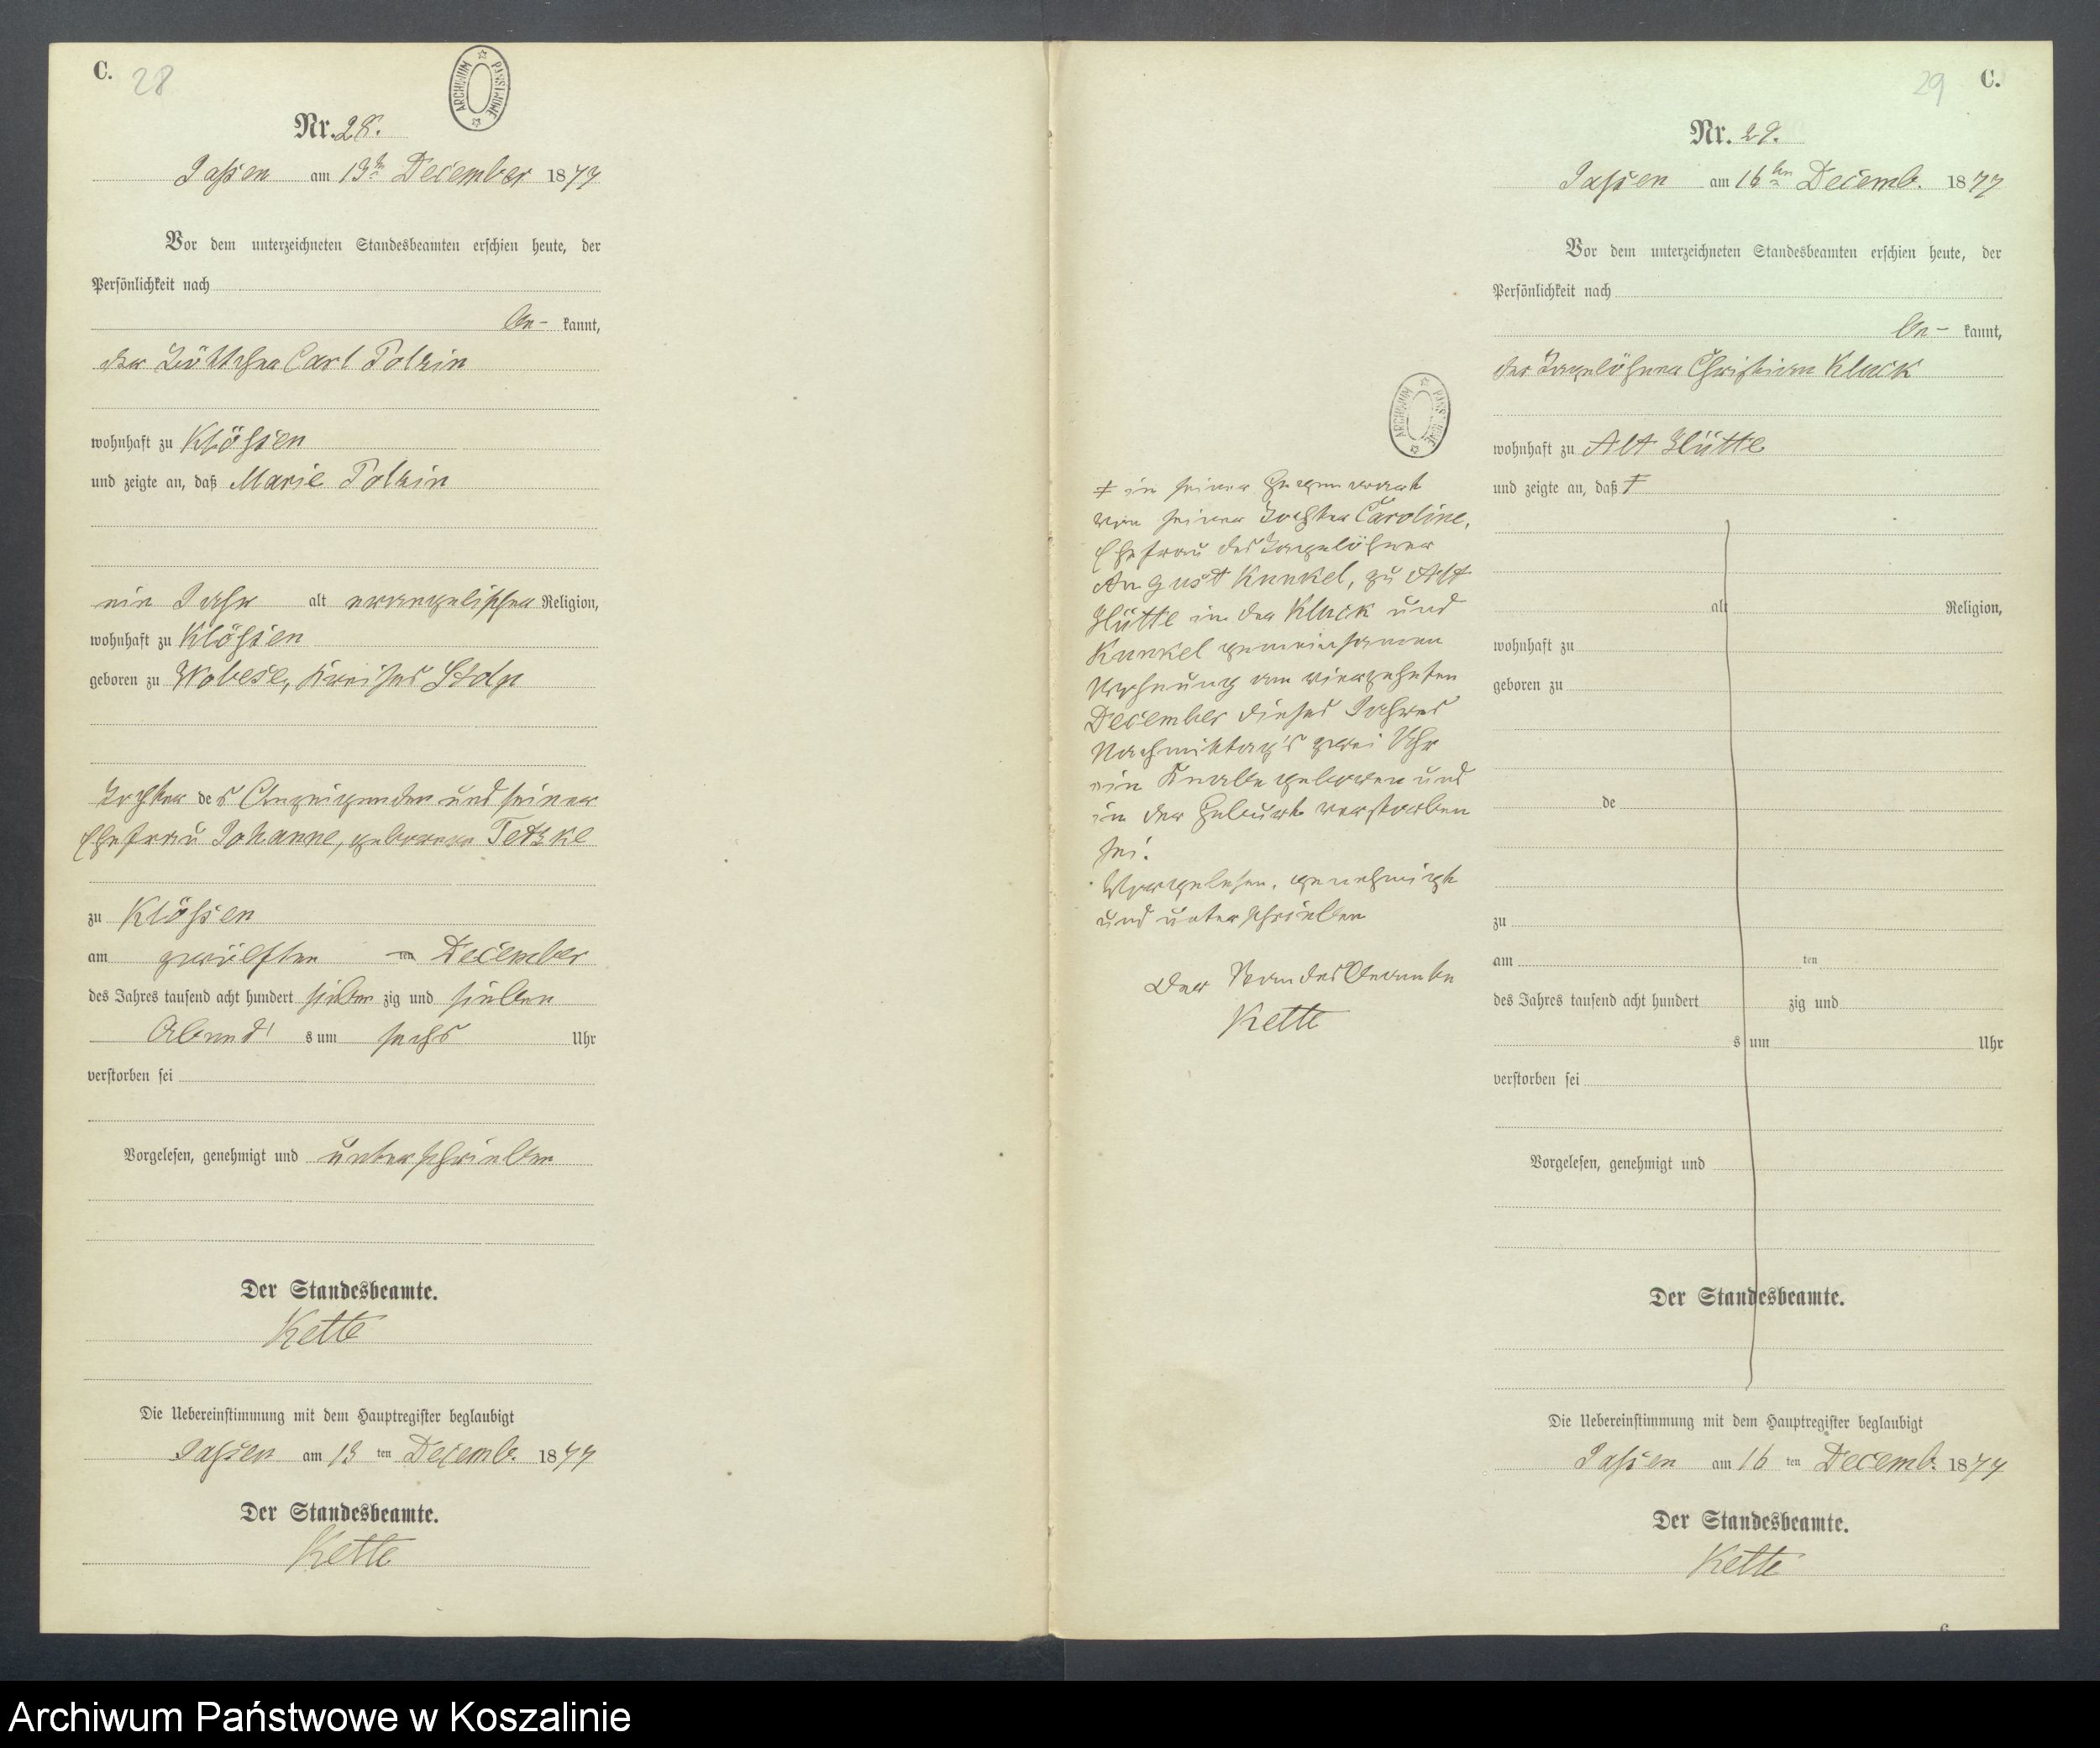 C.
28
ARCHIWUM PAŃSTWOWE
Nr. 28.
Jassen am 13ten December 1877
Vor dem unterzeichneten Standesbeamten erschien heute, der
Persönlichkeit nach
be- kannt,
der Böttcher Carl Polzin
wohnhaft zu Klössen
und zeigte an, daß Marie Polzin
ein Jahr alt evangelischer Religion,
wohnhaft zu Klössen
geboren zu Wobese, Kreises Stolp
Tochter des Anzeigenden und seiner
Ehefrau Johanne, geborenen Tetzke
zu Klössen
am zwölften ten December
des Jahres tausend acht hundert sieben zig und sieben
Abend's um sechs Uhr
verstorben sei
Vorgelesen, genehmigt und unterschrieben
Der Standesbeamte.
Kette
Die Uebereinstimmung mit dem Hauptregister beglaubigt
Jassen am 13 ten Decemb. 1877
Der Standesbeamte.
Kette
29
C.
Nr. 29.
Jassen am 16ten Decemb. 1877
Vor dem unterzeichneten Standesbeamten erschien heute, der
Persönlichkeit nach
be- kannt,
der Tagelöhner Christian Kluck
wohnhaft zu Alt Hütte
und zeigte an, daß ŧ
ARCHIWUM PAŃSTWOWE
ŧ in seiner Gegenwart
von seiner Tochter Caroline,
Ehefrau des Tagelöhner
August Kunkel, zu Alt
Hütte in der Kluck und
Kunkel gemeinsamen
Wohnung am vierzehnten
December dieses Jahres
Nachmittag's zwei Uhr
ein Knabe geboren und
in der Geburt verstorben
sei.
Vorgelesen, genehmigt
und unterschrieben
Der Standesbeamte
Kette
alt Religion,
wohnhaft zu
geboren zu
de
zu
am ten
des Jahres tausend acht hundert zig und
s um Uhr
verstorben sei
Vorgelesen, genehmigt und
Der Standesbeamte.
Die Uebereinstimmung mit dem Hauptregister beglaubigt
Jassen am 16 ten Decemb. 1877
Der Standesbeamte.
Kette
Archiwum Państwowe w Koszalinie